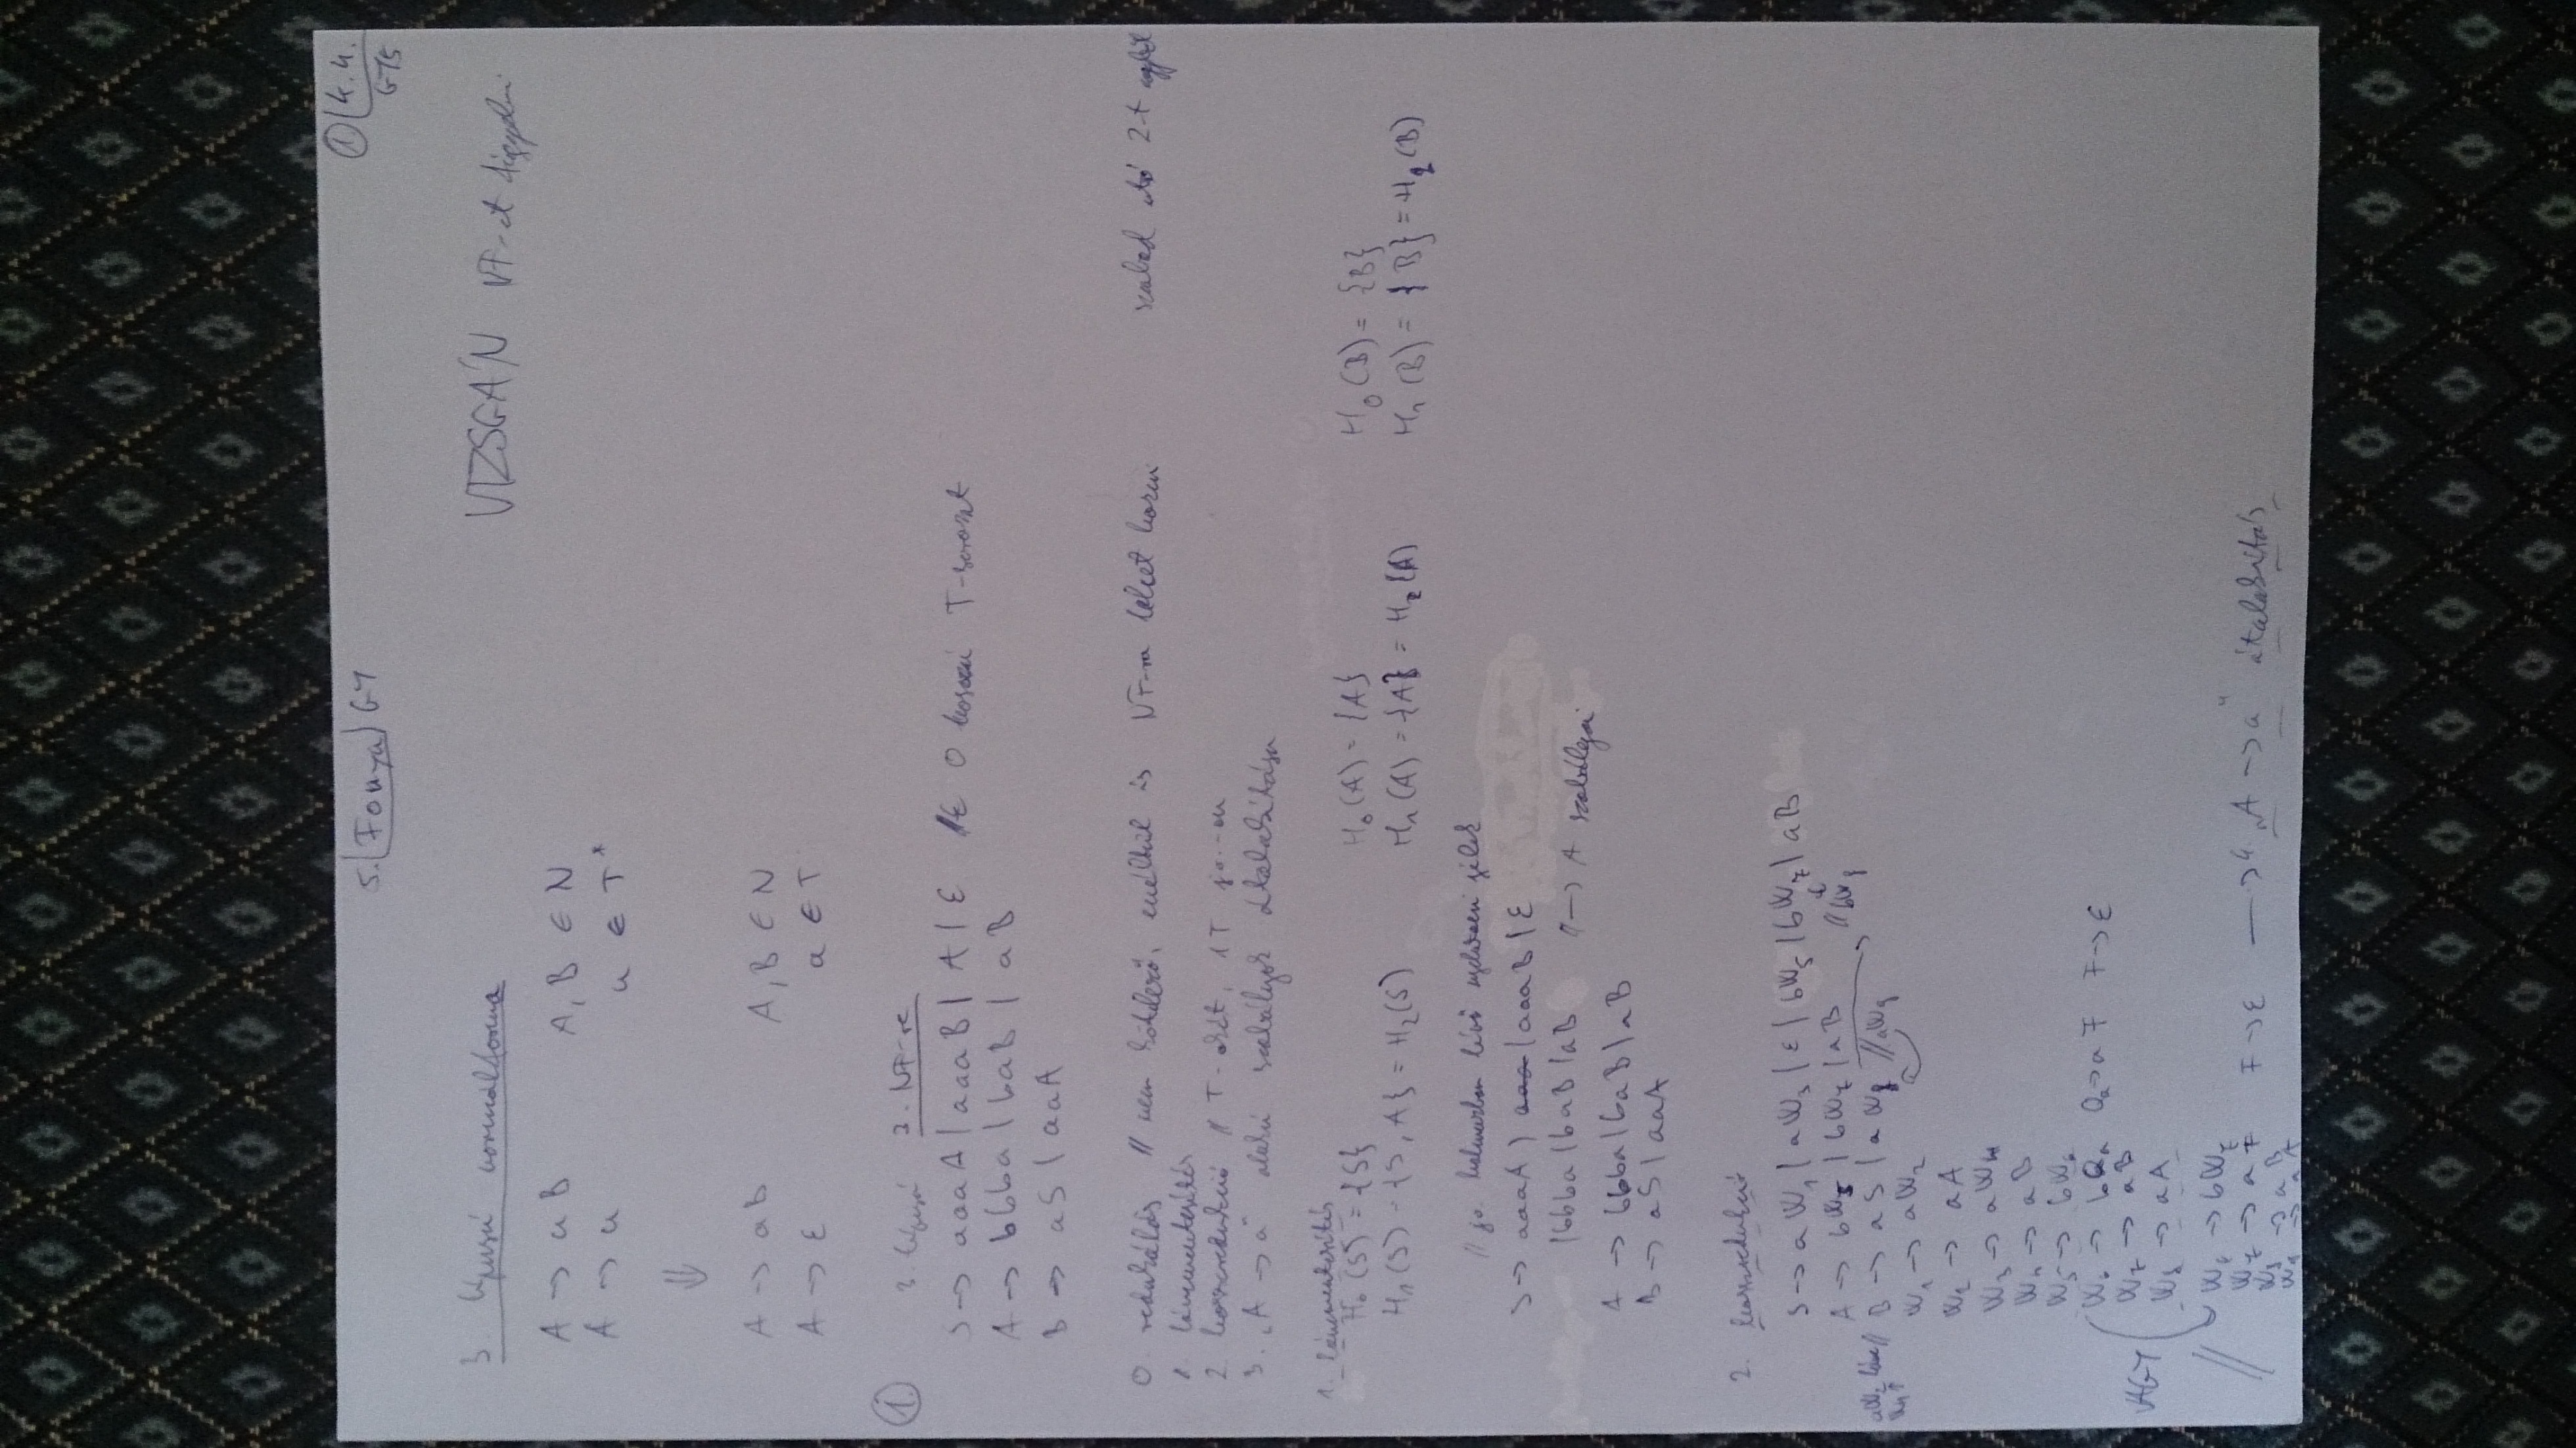 5. Fonya GY
① 4.4.
GY5
3. típusú normálforma
VIZSGÁN NF-et figyelni
A -> uB A, B ∈ N
A -> u u ∈ T*
⇓
A -> aB A, B ∈ N
A -> ε a ∈ T
①. 3. típusú 3. NF-re
S -> aaaA | aaaB | A | ε // ε 0 hosszú T-sorozat
A -> bbba | baB | aB
B -> aS | aaA
0. redukálás // nem kötelező, enélkül is NF-ra lehet hozni
szabad utó 2-t
1. láncmentesítés
2. hosszredukció // T-
3. „A -> a" alakú szabályok átalakítása
1. láncmentesítés
H₀(S) = {S} H₀(A) = {A} H₀(B) = {B}
H₁(S) = {S, A} = H₂(S) H₁(A) = {A} = H₂(A) H₁(B) = {B} = H₂(B)
// jo. halmazban lévő jelek
S -> aaaA | aaa | aaaB | ε
| bbba | baB | aB // -> A szabályai
A -> bbba | baB | aB
B -> aS | aaA
2. hosszredukció
S -> aW₁ | aW₃ | ε | bW₅ | bW₇ | aB
A -> bW₅ | bW₇ | aB // bW₈
B -> aS | aW₈ // aW₉
W₁ -> aW₂
W₂ -> aA
W₃ -> aW₄
W₄ -> aB
W₅ -> bW₆
W₆ -> bQₐ Qₐ -> aF F -> ε
W₇ -> aB
VAGY
W₈ -> aA
W₆ -> bW₇
// W₇ -> aF F -> ε -> 4. „A -> a" átalakítás
W₈ -> aB
W₉ -> aA